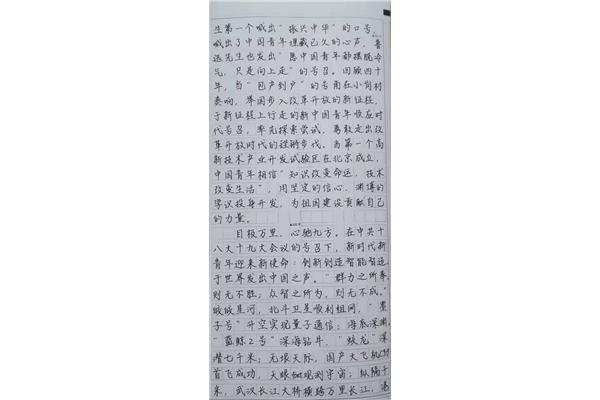 生第一个喊出“振兴中华”的口号，
喊出了中国青年埋藏已久的心声，鲁
迅先生也发出“愿中国青年都摆脱冷
气，只是向上走”的号召。回顾四十
年，当“包产到户”的号角在小岗村
奏响，举国步入改革开放的新征程，
于新征程上行走的新中国青年恢应时
代号召，率先探索尝试，勇敢走出改
革开放时代的铿锵步伐。当第一个高
新技术产业开发试验区在北京成立，
中国青年相信“知识改变命运，技术
改变生活”，用坚定的信心，渊博的
学识投身开发，为祖国建设贡献自己
的力量。
目极万里，心驰九方。在中共十
八大十九大会议的号召下，新时代新
青年迎来新使命：创新创造智能智造，
于世界发出中国之声。“群力之所举，
则无不胜；众智之所为，则无不成。”
皎皎星河，北斗卫星顺利组网，“墨
子号”升空实现量子通信；海底深渊，
“蓝鲸2号”深海钻井，“蛟龙”深
潜七千米；无垠天际，国产大飞机C919
首飞成功，天眼观测宇宙；纵隔千
米，武汉长江大桥横跨万里长江，港